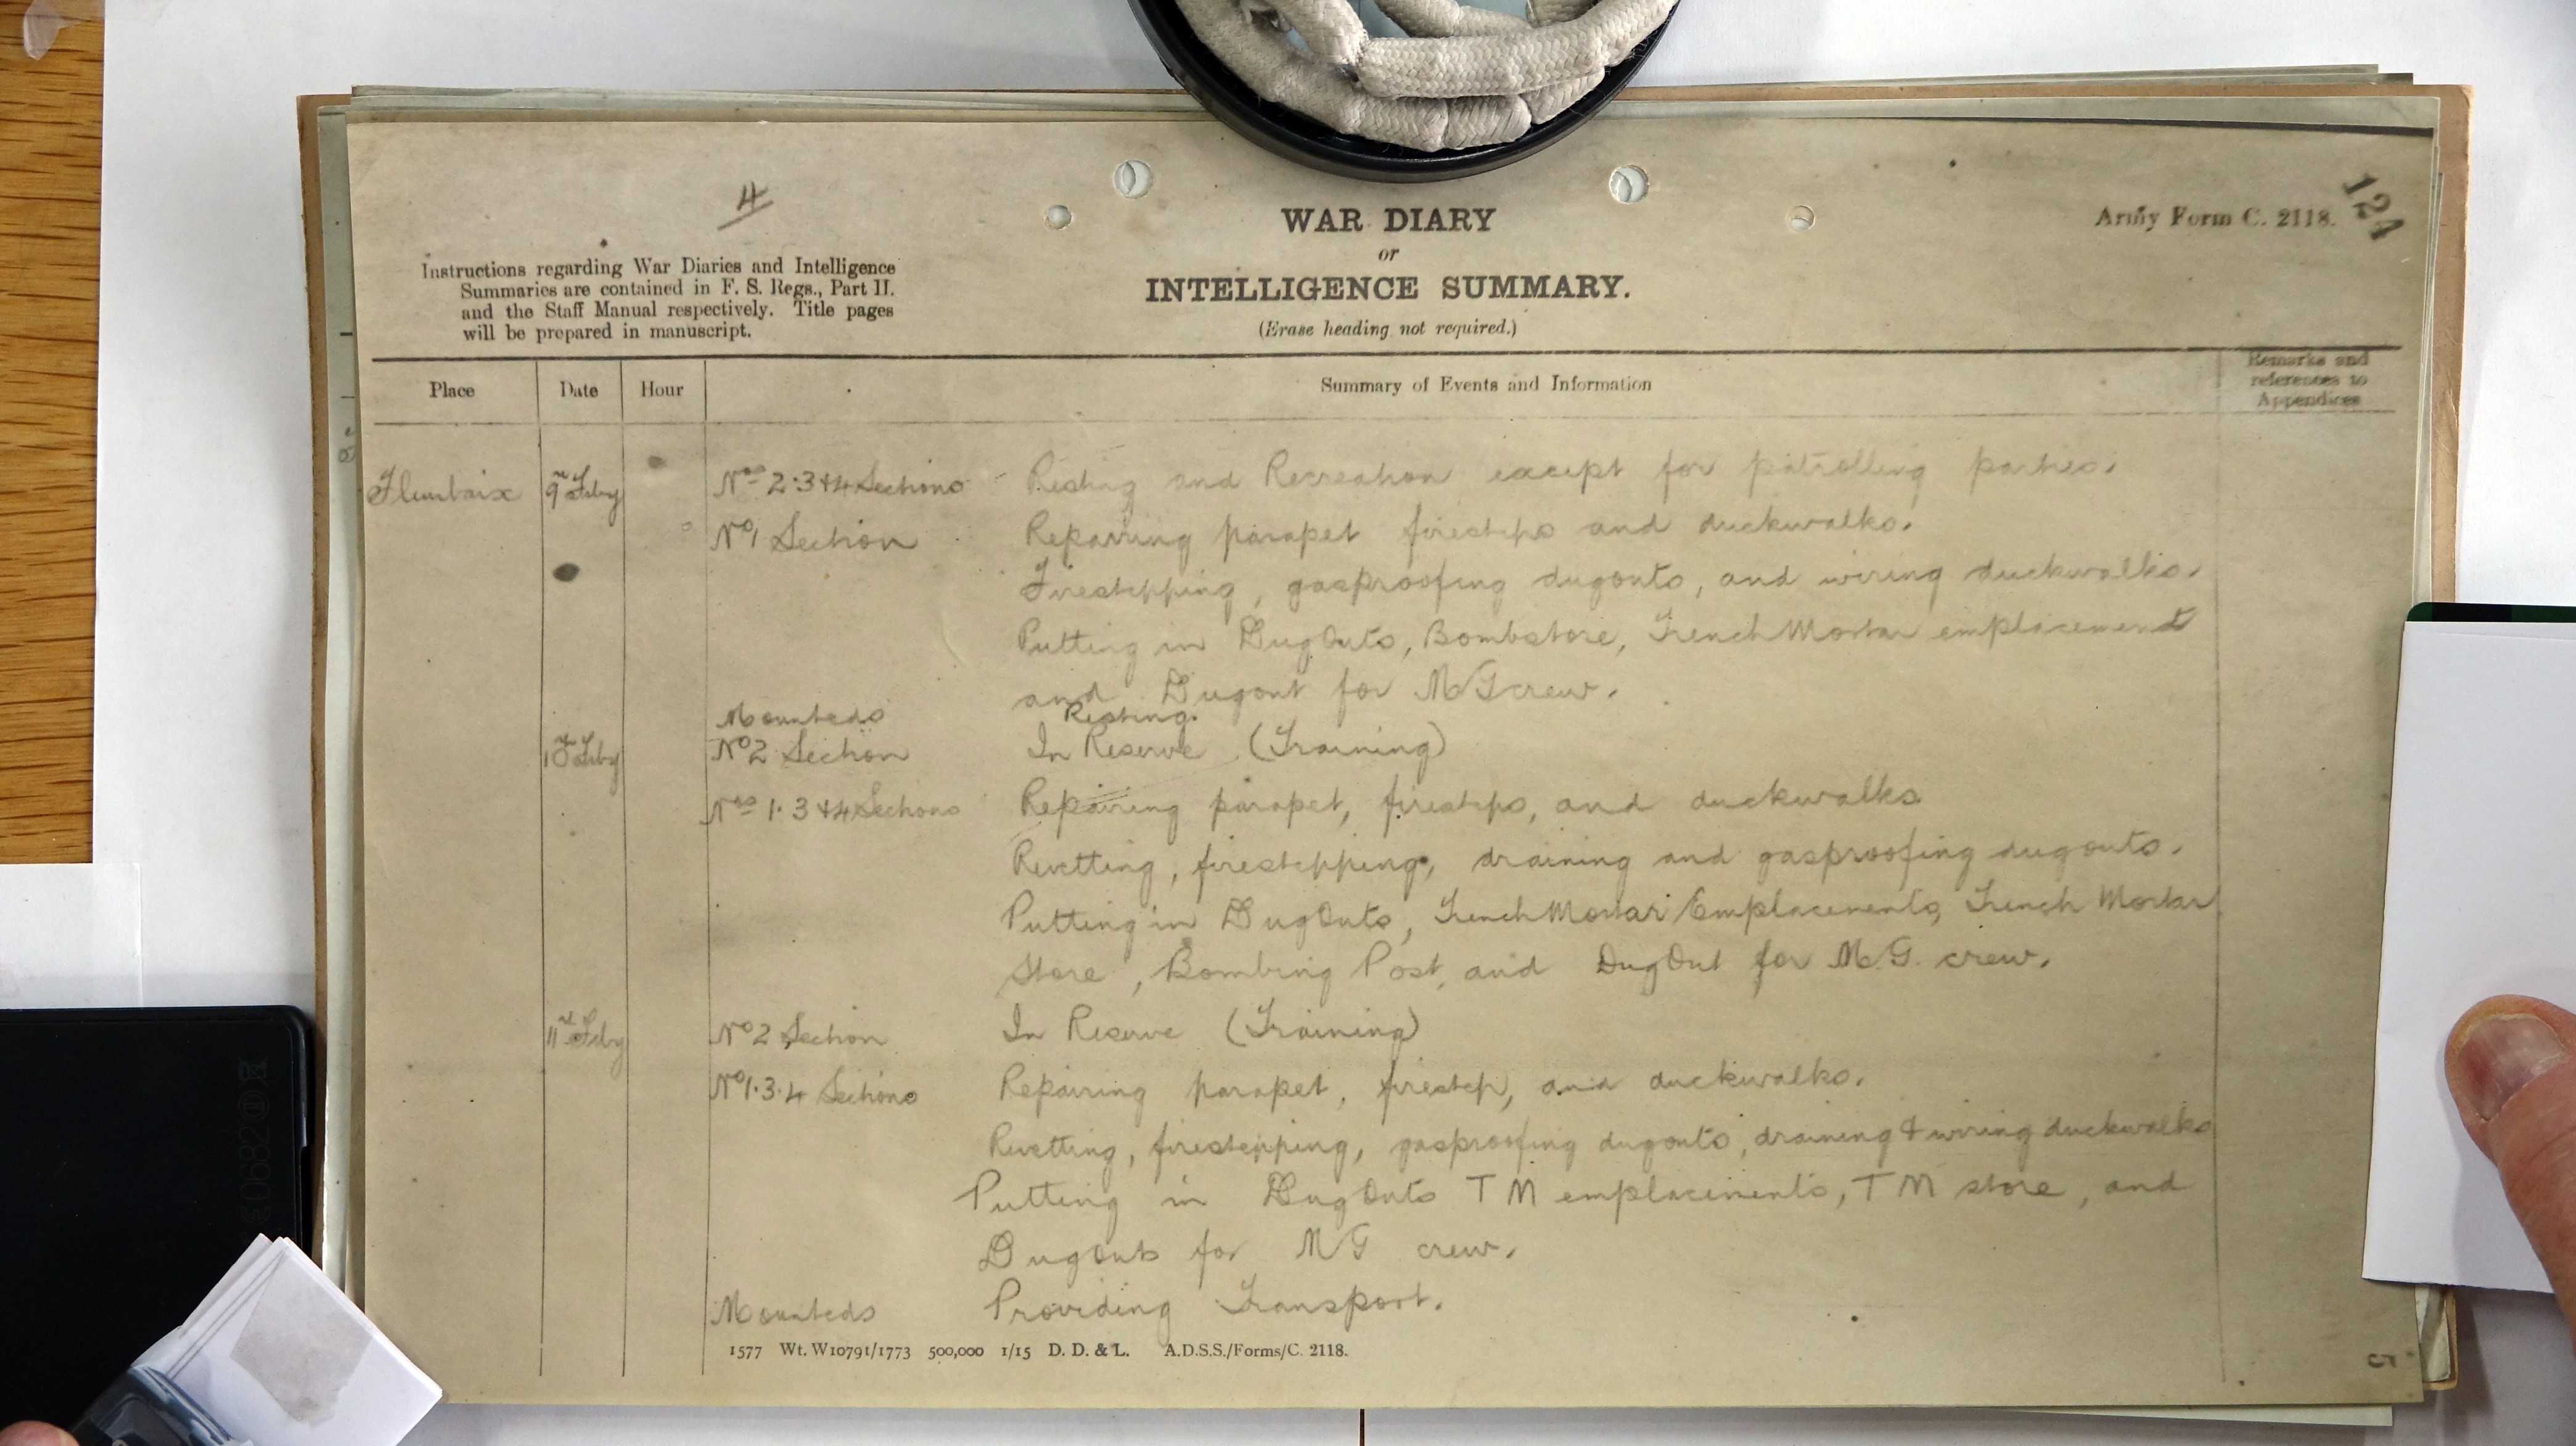 4
WAR DIARY
or
INTELLIGENCE SUMMARY.
(Erase heading not required.)
Army Form C. 2118.
124
Instructions regarding War Diaries and Intelligence
Summaries are contained in F. S. Regs., Part II.
and the Staff Manual respectively. Title pages
will be prepared in manuscript.
Place Date Hour Summary of Events and Information Remarks and
references to
Appendices
Fleurbaix 9th Feby Nos 2.3 & 4 Sections Resting and Recreation except for patrolling parties.
No 1 Section Repairing parapet firesteps and duckwalks.
Firestepping, gasproofing dugouts, and wiring duckwalks.
Putting in DugOuts, Bombstore, Trench Mortar emplacement
and Dugout for MG crew.
Mounteds Resting.
10th Feby No 2 Section In Reserve (Training)
Nos 1.3 & 4 Sections Repairing parapet, firesteps, and duckwalks
Revetting, firestepping, draining and gasproofing dugouts.
Putting in DugOuts, Trench Mortar Emplacements, Trench Mortar
Store, Bombing Post, and DugOut for M.G. crew.
11th Feby No 2 Section In Reserve (Training)
No 1.3.4 Sections Repairing parapet, firestep, and duckwalks.
Revetting, firestepping, gasproofing dugouts, draining & wiring duckwalks
Putting in DugOuts T M emplacements, T M store, and
DugOuts for MG crew.
Mounteds Providing Transport.
1577 Wt. W10791/1773 500,000 1/15 D. D. & L. A.D.S.S./Forms/C. 2118.